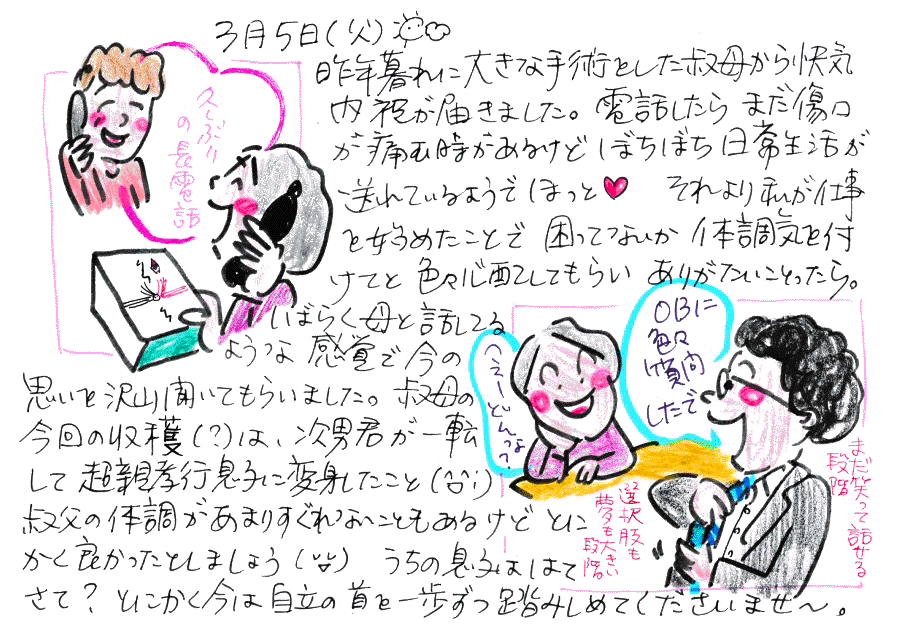 3月5日(火)
昨年暮れに大きな手術をした叔母から快気
内祝が届きました。電話したら まだ傷口
が痛む時があるけど ぼちぼち日常生活が
送れているようでほっと♥ それより私が仕事
を始めたことで 困ってないか 体調気を付
けてと 色々心配してもらい ありがたいことったら。
しばらく母と話してる
ような感覚で今の
思いを沢山聞いてもらいました。叔母の
今回の収穫(?)は、次男君が一転
して超親孝行息子に変身したこと
叔父の体調があまりすぐれないこともあるけど とに
かく良かったとしましょう うちの息子ははて
さて? とにかく今は自立の道を一歩ずつ踏みしめてくださいませ〜。
久しぶり
の長電話
へえーどんなって?
OBに
色々
質問
したで
まだ笑って話せる
段階
選択肢も
夢も大きい
段階